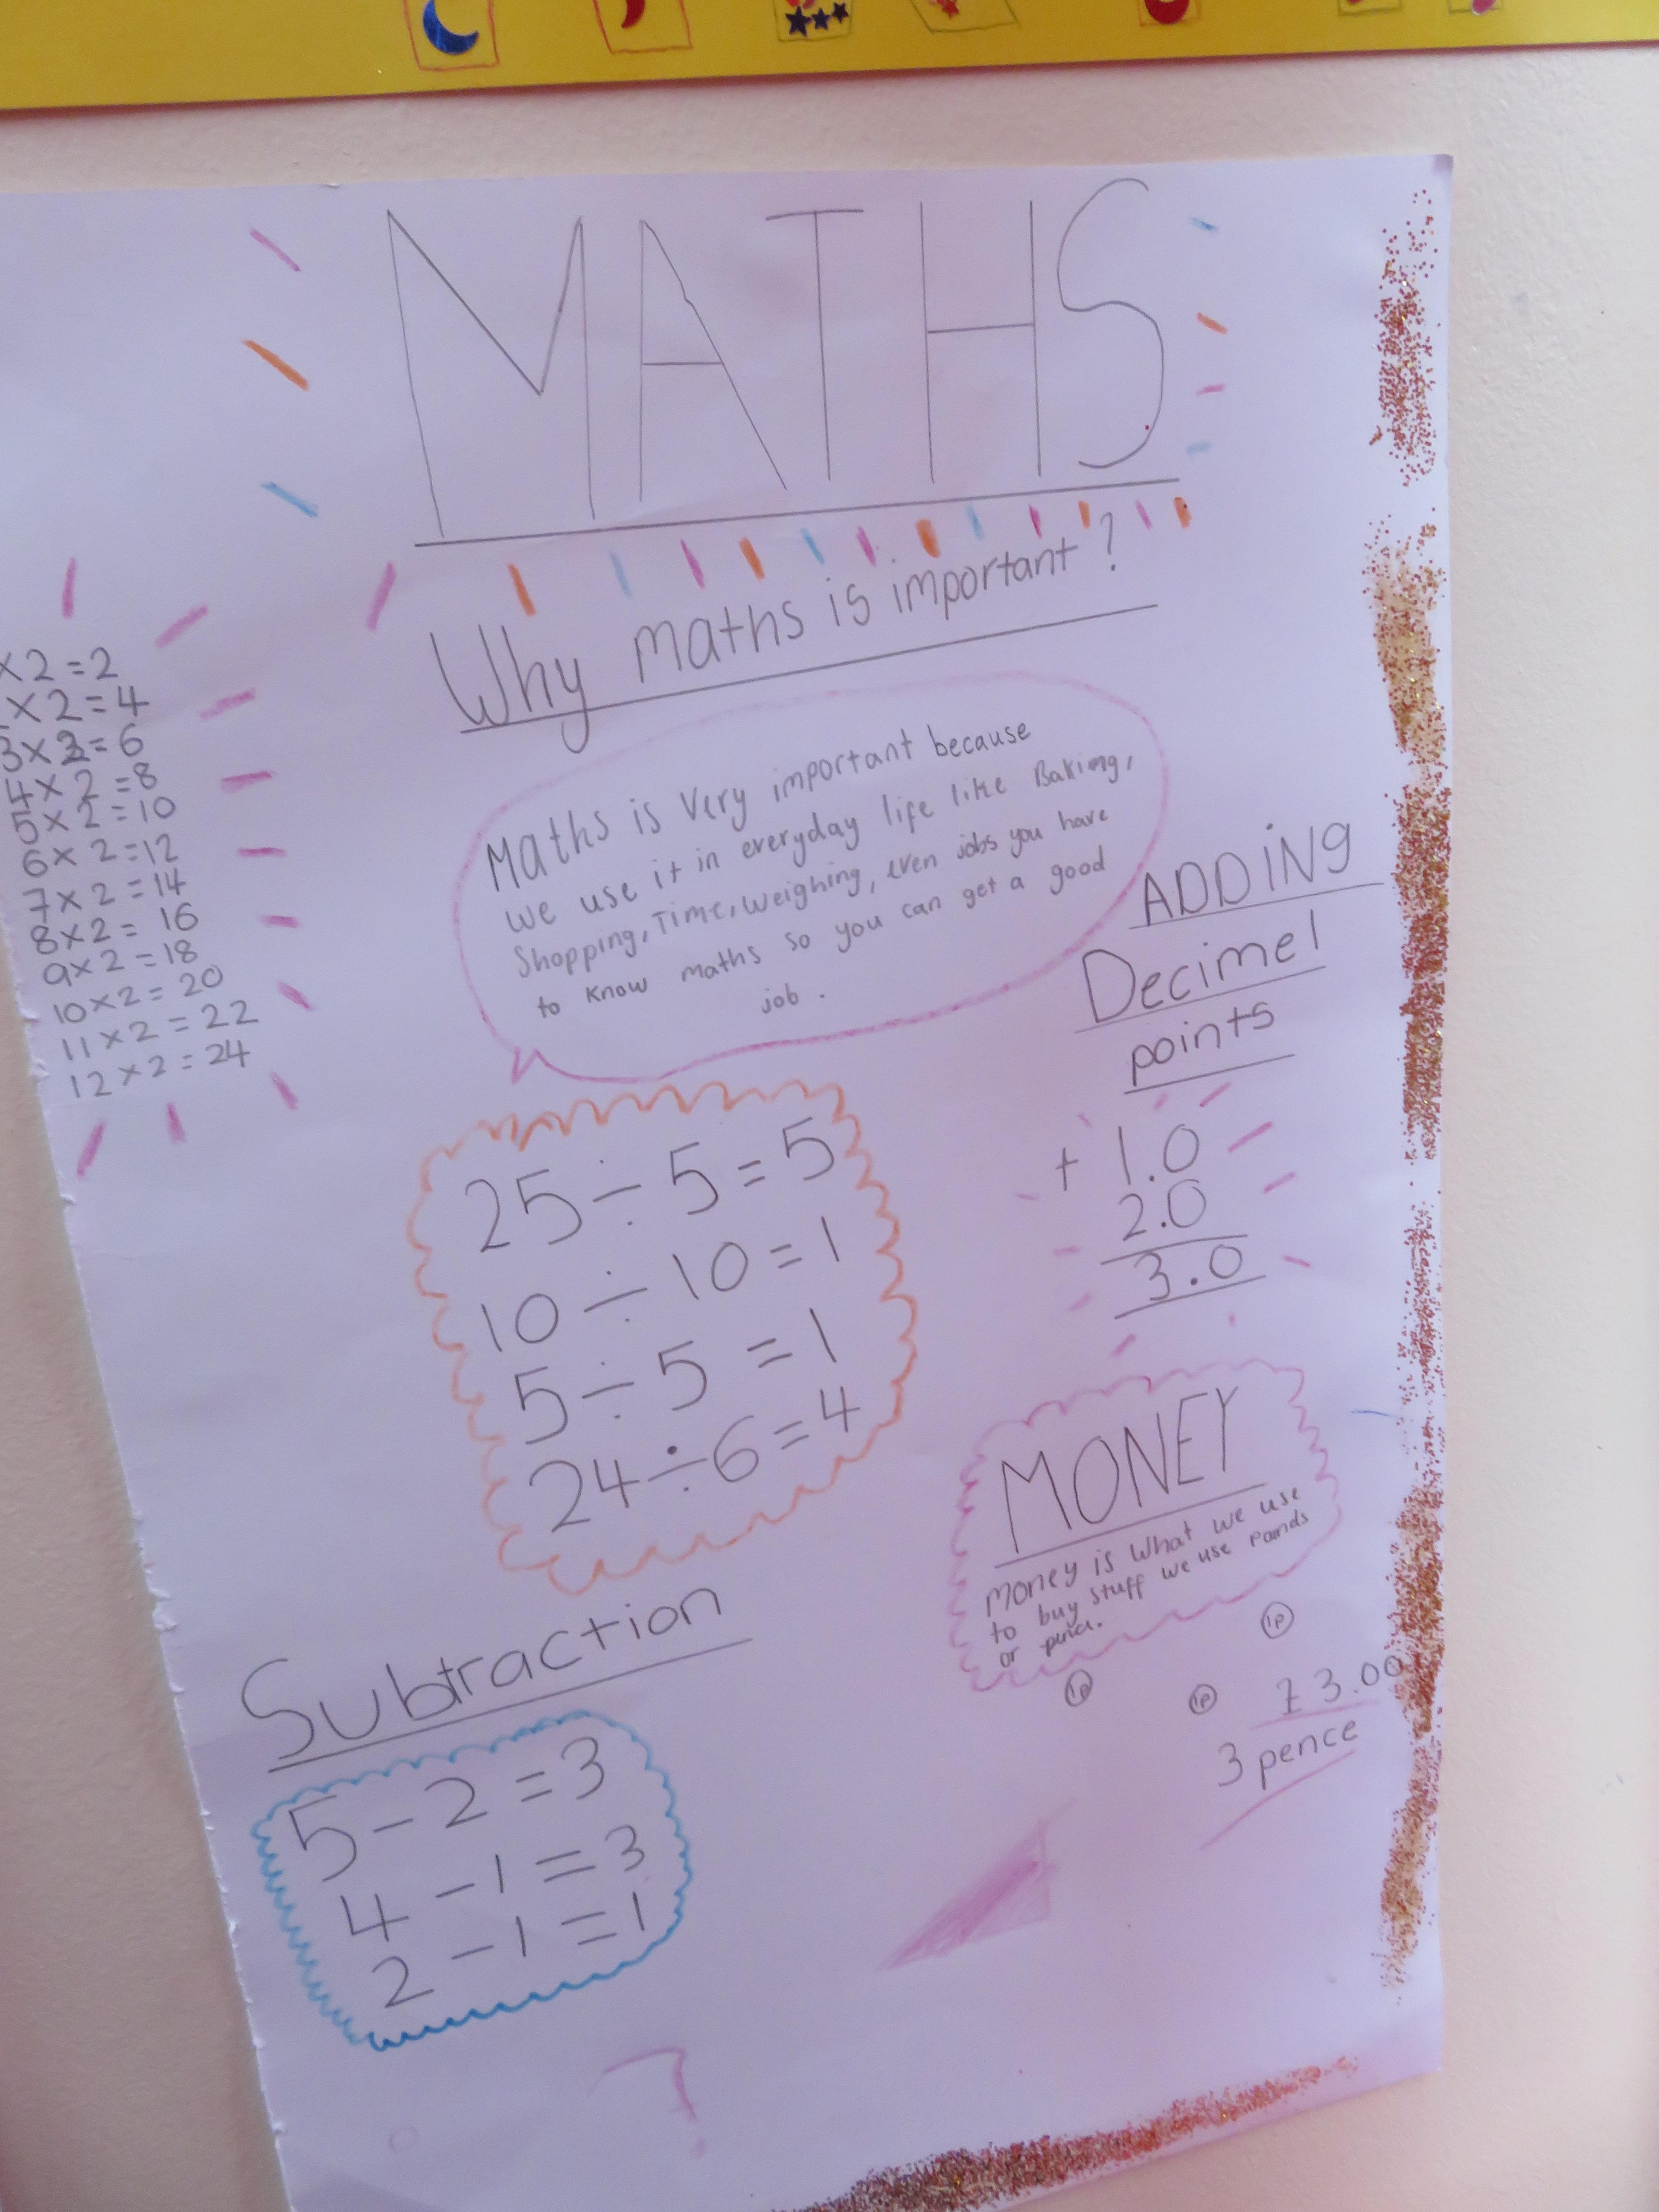 MATHS
Why maths is important?
×2=2
×2=4
3×2=6
4×2=8
5×2=10
6×2=12
7×2=14
8×2=16
9×2=18
10×2=20
11×2=22
12×2=24
Maths is very important because
we use it in everyday life like Baking,
Shopping, Time, Weighing, even jobs you have
to know maths so you can get a good
job.
ADDiNg
Decimel
points
+ 1.0
2.0
3.0
25÷5=5
10÷10=1
5÷5=1
24÷6=4
MONEY
money is what we use
to buy stuff we use
or
1p
1p
1p
£3.00
3 pence
Subtraction
5-2=3
4-1=3
2-1=1
?